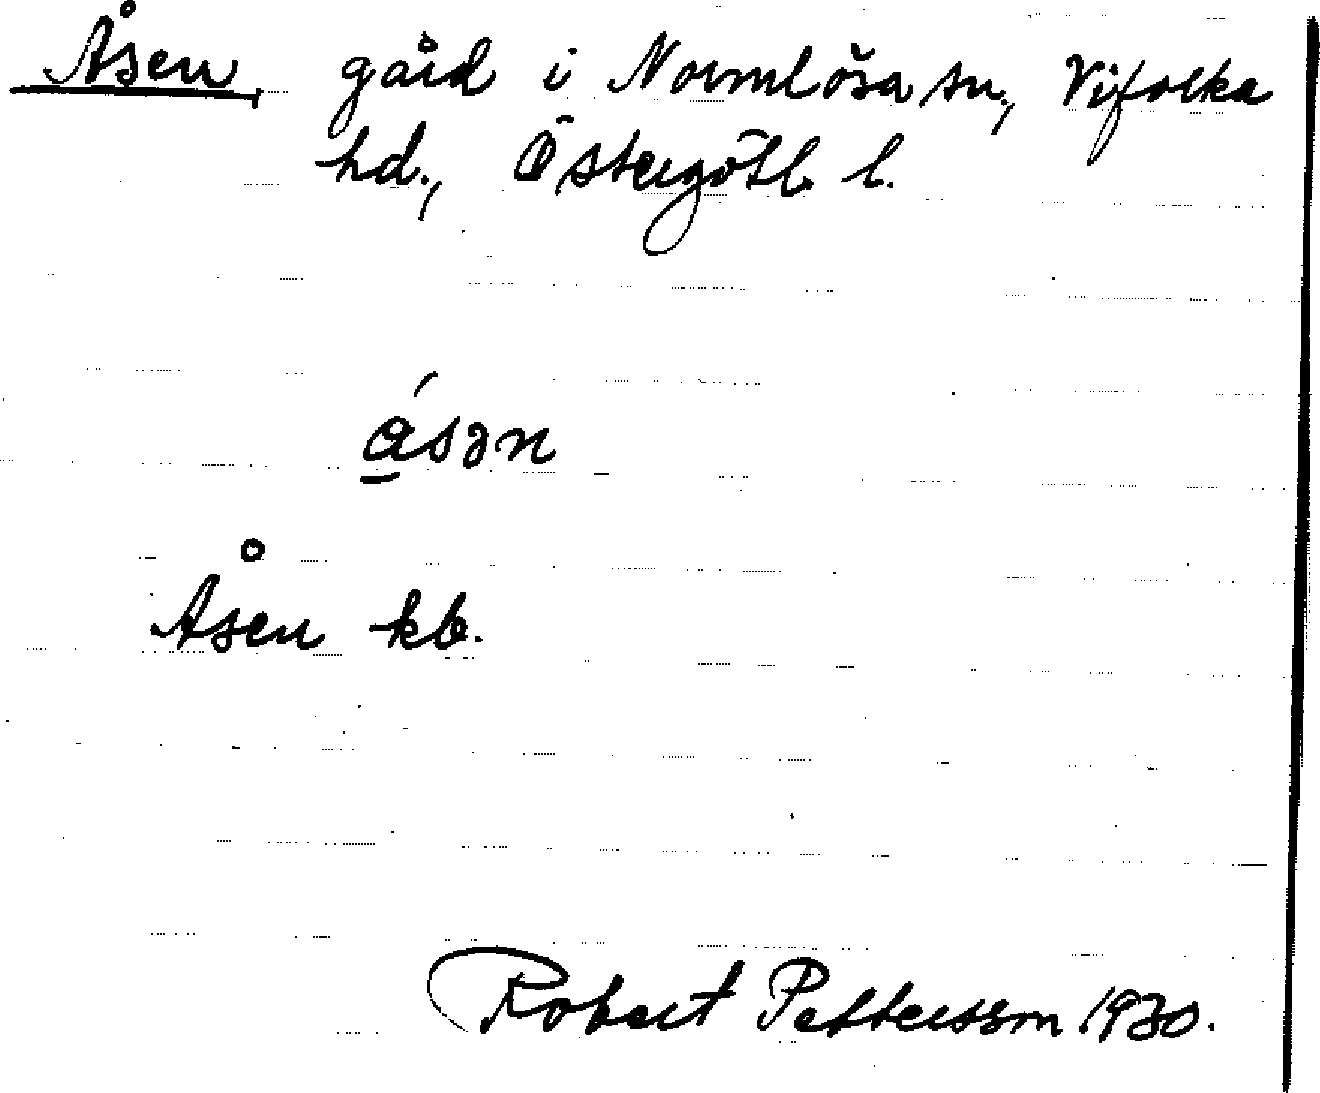 Åsen gård i Normlösa sn, Vifolka
hd., Östergötl. l.
ásən
Åsen kb.
Robert Pettersson 1930.